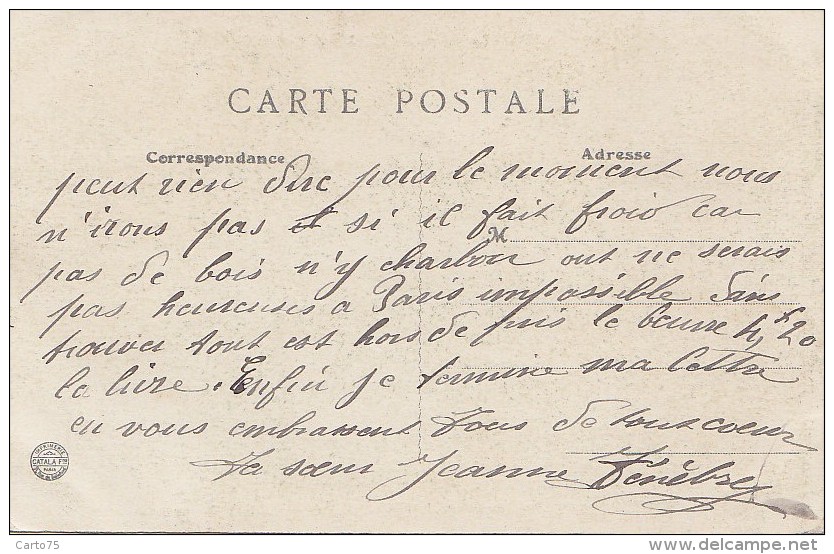 CARTE POSTALE
Correspondance
Adresse
peut rien dire pour le moment nous
n'irons pas et si il fait froid car
M
pas de bois n'y charbon ont ne serais
pas heureuses a Paris impossible d'ins
trouver tout est hors de prix le beurre 4f20
la livre. Enfin je termine ma lettre
en vous embrassent tous de tout coeur
Ta soeur Jeanne Ténèbre
IMPRIMERIE
CATALA Fres
PARIS
Carto75
delcampe.net